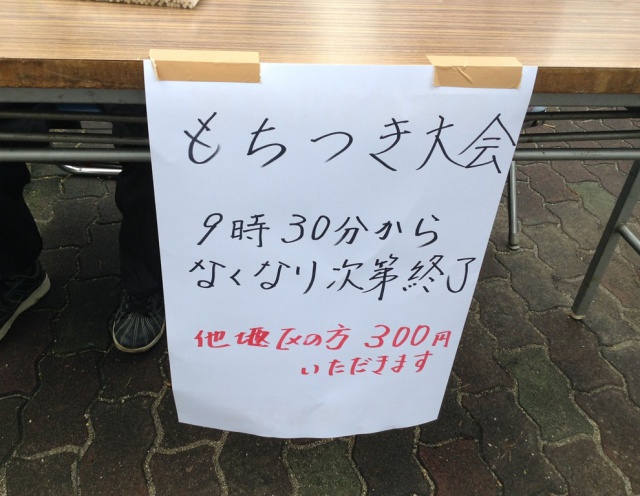 もちつき大会
9時30分から
なくなり次第終了
他地区の方 300円
いただきます